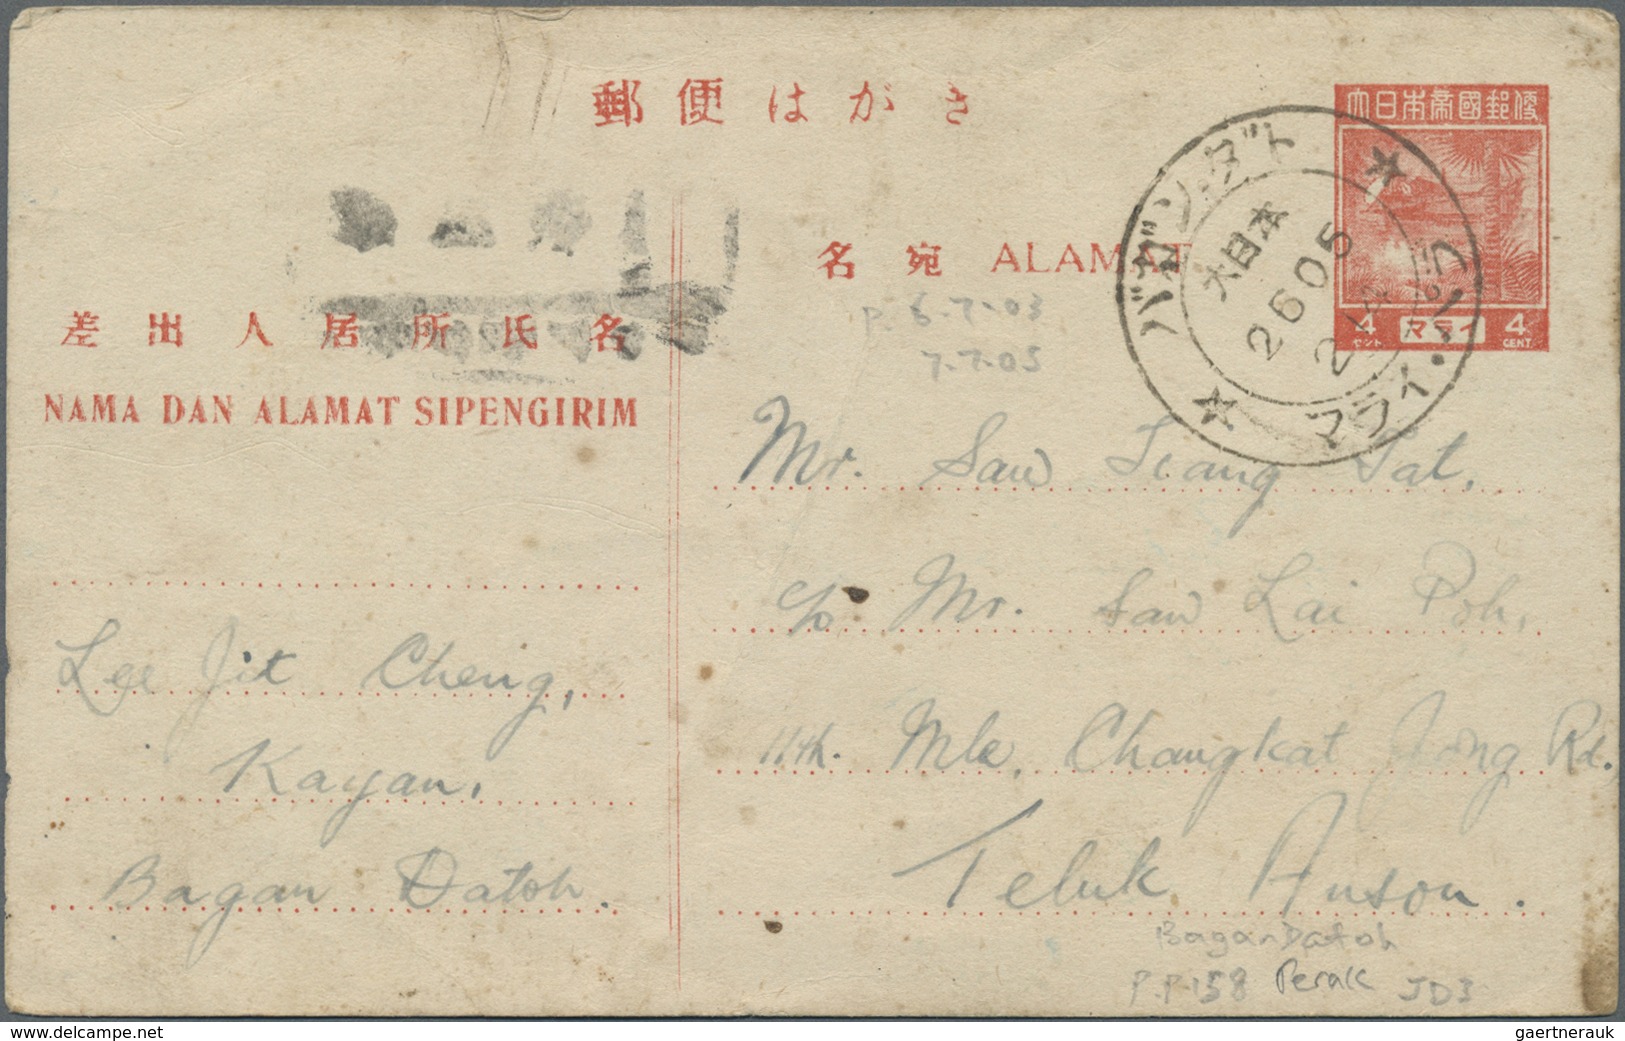 郵便はがき
大日本帝國郵便
4 マライ 4
セント CENT.
バガン・ダト
大日本
2605
マライ・ペラ
名宛 ALAMAT
P. 6.7.03
7.7.05
差出人居所氏名
NAMA DAN ALAMAT SIPENGIRIM
Mr. Saw Siang Sat,
c/o Mr. Saw Lai Poh,
11th. Mle, Changkat Jong Rd.
Teluk Anson.
Lee Jit Cheng,
Kayan,
Bagan Datoh.
Bagan Datoh
P.P.158 Perak JD3
www.delcampe.net
gaertnerauk